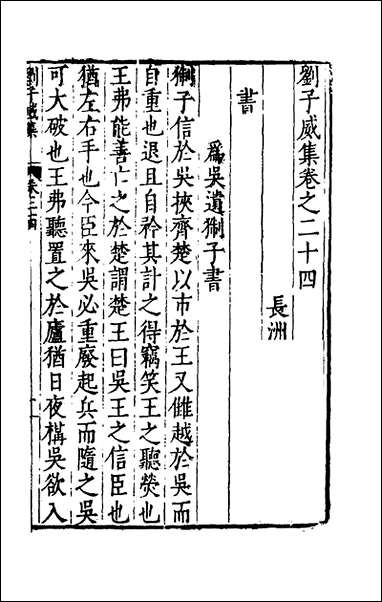 劉子威集卷之二十四
長洲
書
為吳遺猘子書
猘子信於吳挾齊楚以市於王又讎越於吳而
自重也退且自矜其計之得竊笑王之聽熒也
王弗能善亡之於楚謂楚王曰吳王之信臣也
猶左右手也今臣來吳必重廢起兵而隨之吳
可大破也王弗聽置之於廬猶日夜構吳欲入
劉子威集
卷二十四
一